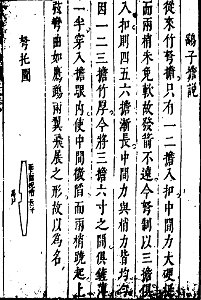 鷂子擔說
從來竹弩擔只有一二擔入扣中間力大硬挺
而兩稍未免軟故發箭不遠今弩制以三擔俱
入扣則四五六擔漸長中間力與梢力皆均今
因一二三擔竹厚今將三擔六寸之間俱鏟薄
一半穿入擔眼內使中間微陷而兩梢曉起上
弦彎曲如鷹鷂兩翼飛展之形故以為名
弩托圖